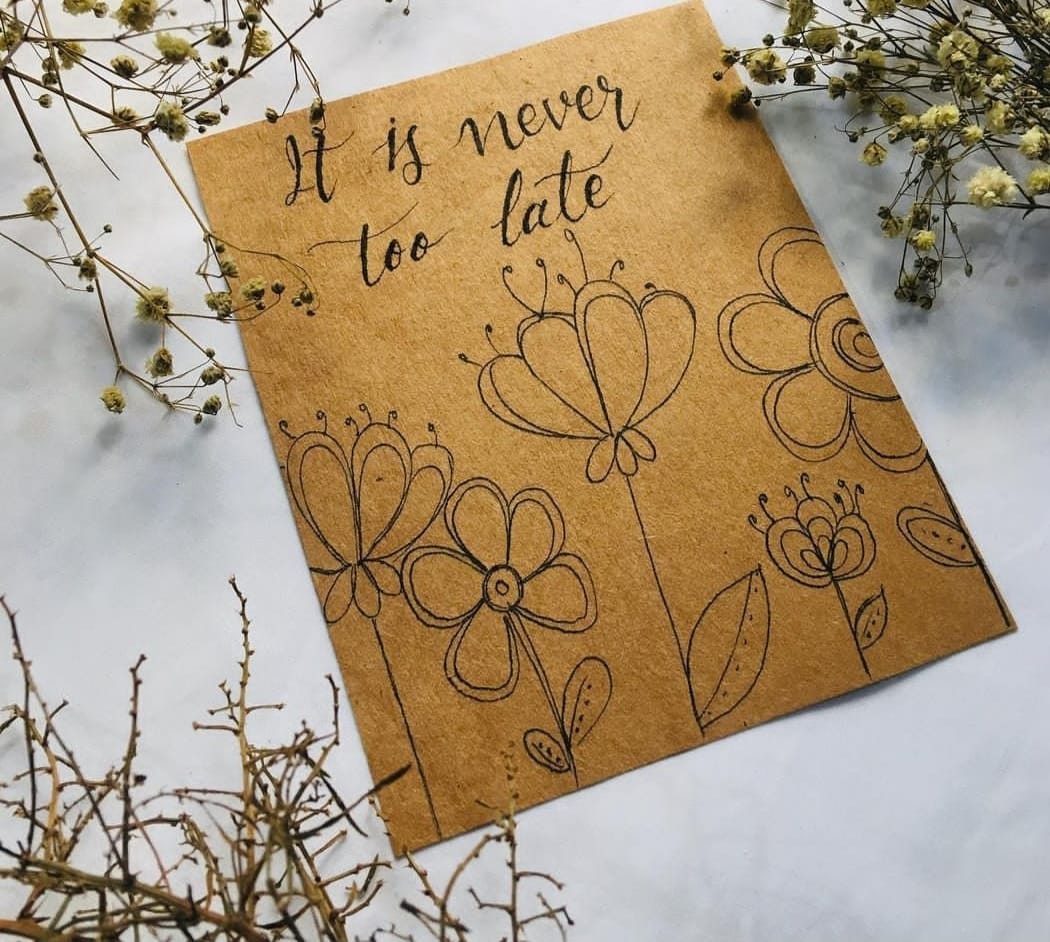 It is never
too late